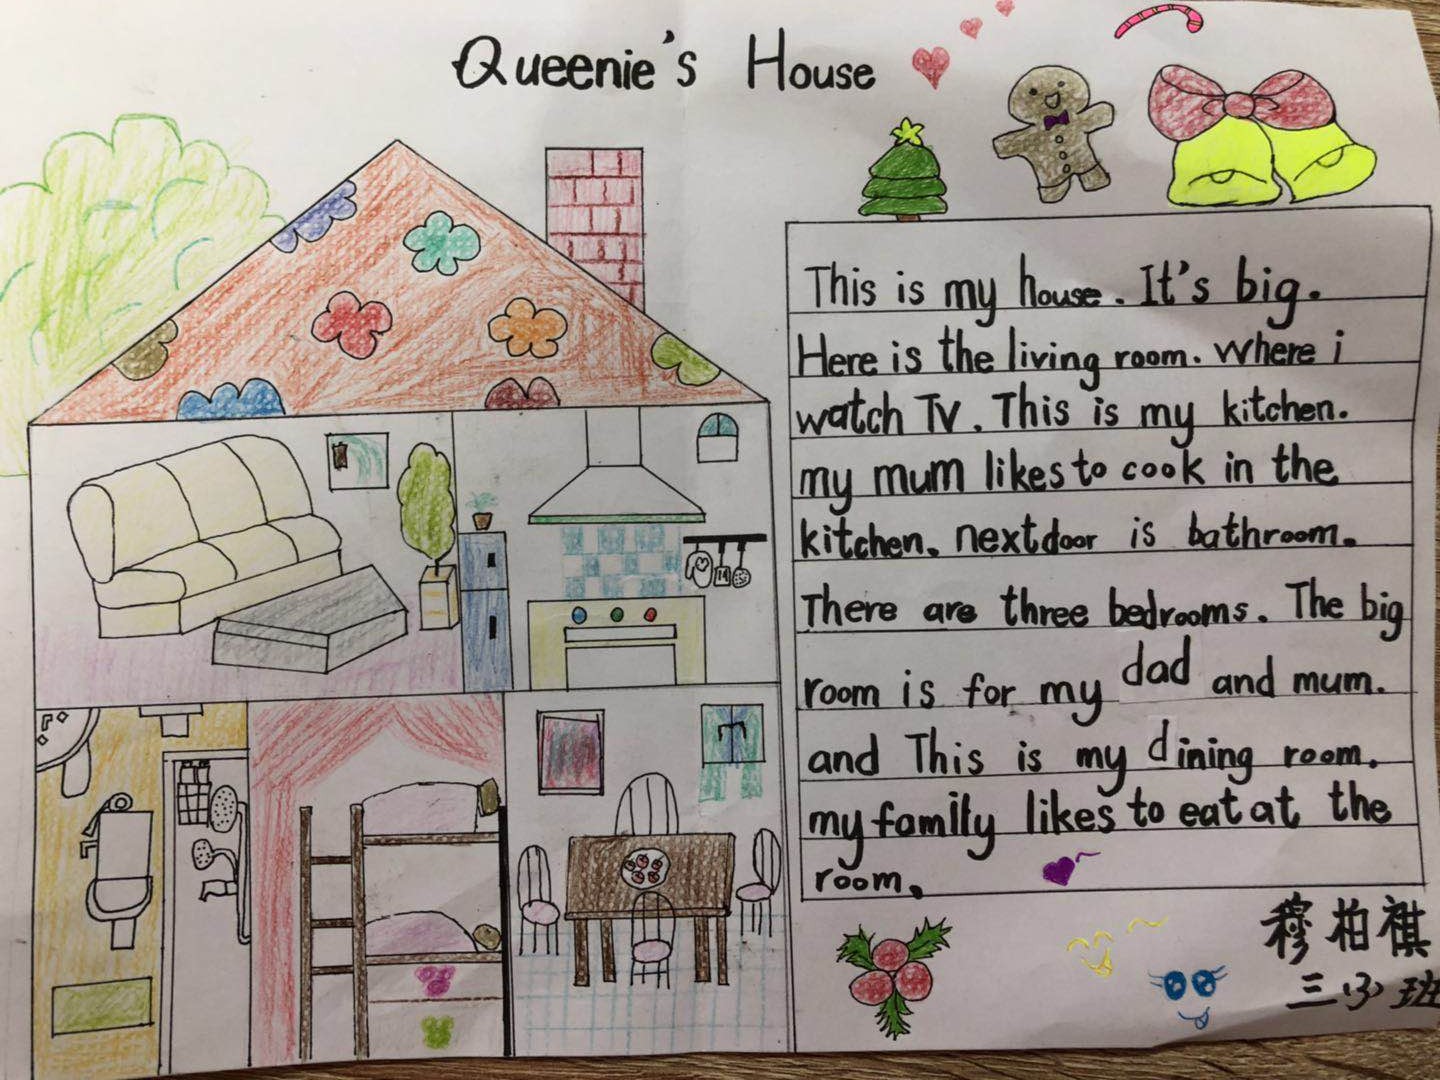 Queenie's House
This is my house. It's big.
Here is the living room. Where i
watch TV. This is my kitchen.
my mum likes to cook in the
kitchen. next door is bathroom.
There are three bedrooms. The big
room is for my dad and mum.
and This is my dining room.
my family likes to eat at the
room.
穆柏祺
三(3)班